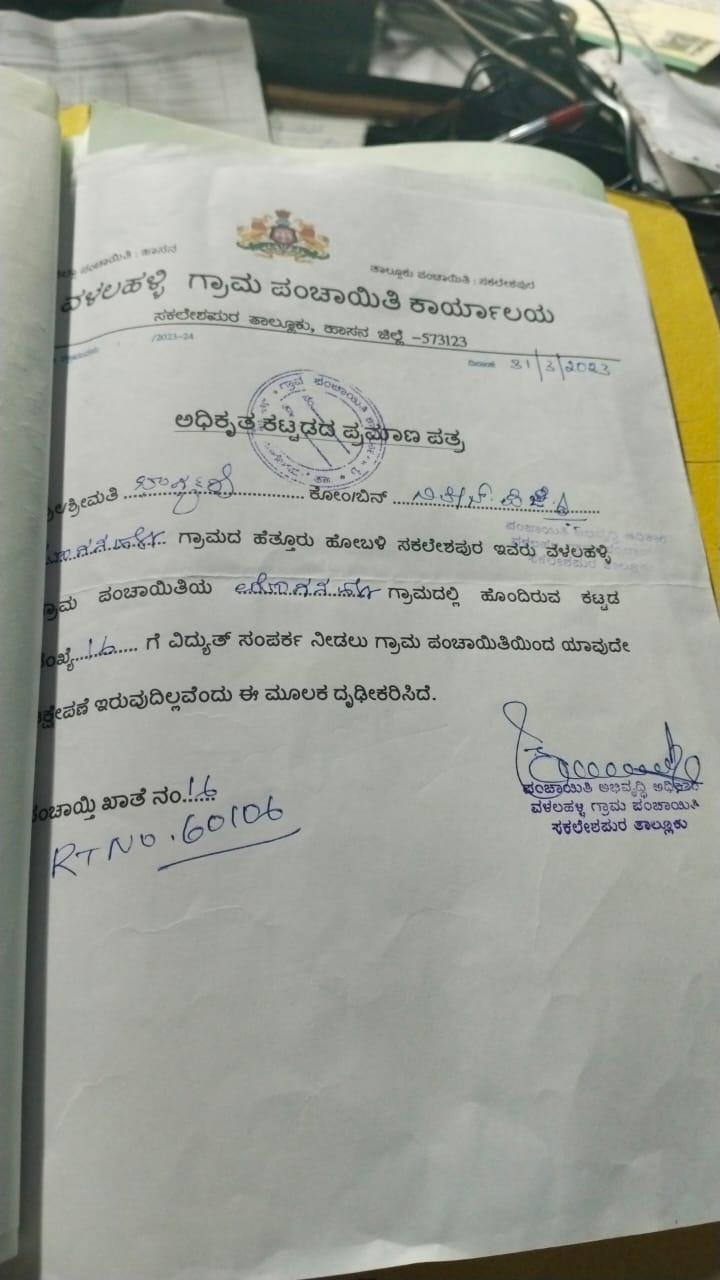 ಪಂಚಾಯಿತಿ : ಹಾಸನ
ತಾಲ್ಲೂಕು ಪಂಚಾಯಿತಿ : ಸಕಲೇಶಪುರ
ವಳಲಹಳ್ಳಿ ಗ್ರಾಮ ಪಂಚಾಯಿತಿ ಕಾರ್ಯಾಲಯ
ಸಕಲೇಶಪುರ ತಾಲ್ಲೂಕು, ಹಾಸನ ಜಿಲ್ಲೆ -573123
/2023-24
ದಿನಾಂಕ 31/3/2023
ಅಧಿಕೃತ ಕಟ್ಟಡದ ಪ್ರಮಾಣ ಪತ್ರ
ಗ್ರಾಮ ಪಂಚಾಯಿತಿ
/ಶ್ರೀಮತಿ .......... ಕೋಂ/ಬಿನ್ ..........
ಗ್ರಾಮದ ಹೆತ್ತೂರು ಹೋಬಳಿ ಸಕಲೇಶಪುರ ಇವರು ವಳಲಹಳ್ಳಿ
ಗ್ರಾಮ ಪಂಚಾಯಿತಿಯ ಗ್ರಾಮದಲ್ಲಿ ಹೊಂದಿರುವ ಕಟ್ಟಡ
16 ಗೆ ವಿದ್ಯುತ್ ಸಂಪರ್ಕ ನೀಡಲು ಗ್ರಾಮ ಪಂಚಾಯಿತಿಯಿಂದ ಯಾವುದೇ
ಇರುವುದಿಲ್ಲವೆಂದು ಈ ಮೂಲಕ ದೃಢೀಕರಿಸಿದೆ.
ಪಂಚಾಯ್ತಿ ಖಾತೆ ನಂ.16
RT NO. 60106
ಪಂಚಾಯಿತಿ ಅಭಿವೃದ್ಧಿ ಅಧಿಕಾರಿ
ವಳಲಹಳ್ಳಿ ಗ್ರಾಮ ಪಂಚಾಯಿತಿ
ಸಕಲೇಶಪುರ ತಾಲ್ಲೂಕು